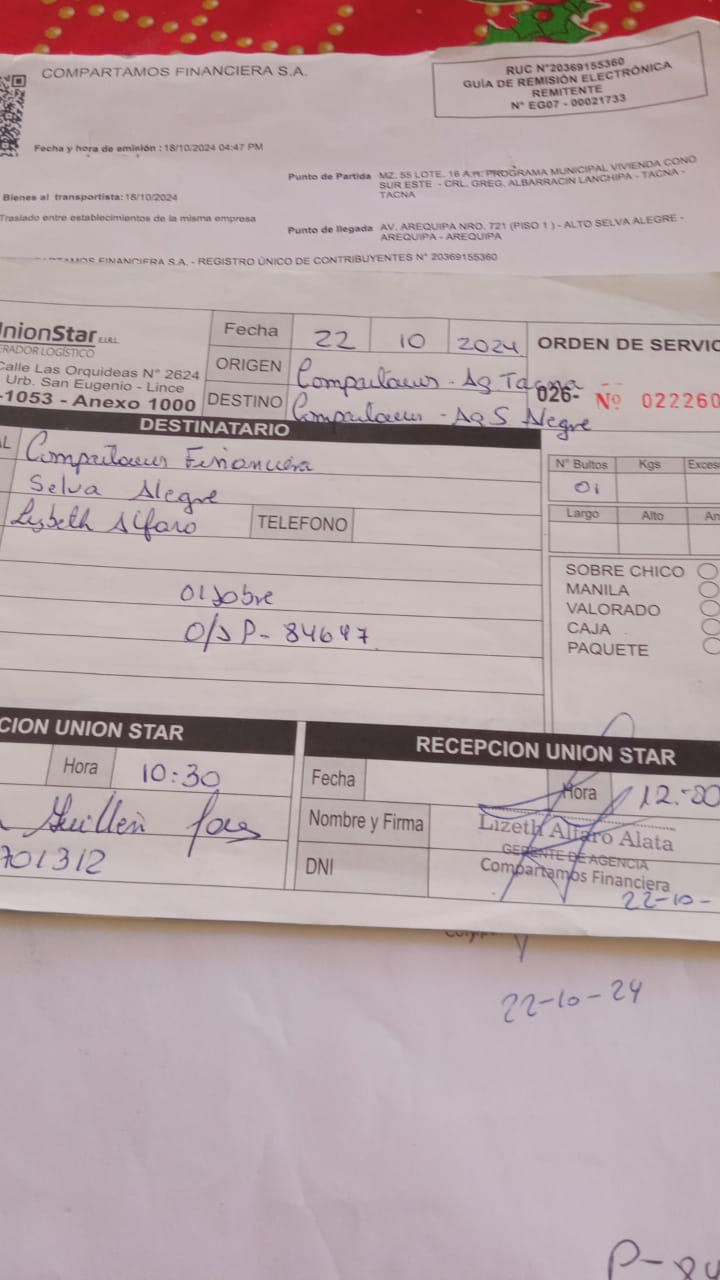 COMPARTAMOS FINANCIERA S.A.
RUC N°20369155360
GUÍA DE REMISIÓN ELECTRÓNICA
REMITENTE
N° EG07 - 00021733
Fecha y hora de emisión : 18/10/2024 04:47 PM
Punto de Partida MZ. 55 LOTE. 16 A.H. PROGRAMA MUNICIPAL VIVIENDA CONO
SUR ESTE - CRL. GREG. ALBARRACIN LANCHIPA - TACNA -
TACNA
Bienes al transportista: 18/10/2024
Traslado entre establecimientos de la misma empresa
Punto de llegada AV. AREQUIPA NRO. 721 (PISO 1 ) - ALTO SELVA ALEGRE -
AREQUIPA - AREQUIPA
TAMOS FINANCIERA S.A. - REGISTRO ÚNICO DE CONTRIBUYENTES N° 20369155360
nionStar E.I.R.L.
ERADOR LOGÍSTICO
Calle Las Orquideas N° 2624
Urb. San Eugenio - Lince
-1053 - Anexo 1000
Fecha 22 10 2024
ORIGEN Compartamos - Ag Tacna
DESTINO Compartamos - Ag S Alegre
ORDEN DE SERVIC
026- Nº 022260
DESTINATARIO
AL Compartamos Financiera
Selva Alegre
Lizbeth Alfaro TELEFONO
01 Sobre
O/S P- 84647
N° Bultos Kgs Exces
01
Largo Alto An
SOBRE CHICO
MANILA
VALORADO
CAJA
PAQUETE
CION UNION STAR
Hora 10:30
Guillen
701312
RECEPCION UNION STAR
Fecha Hora 12:00
Nombre y Firma Lizeth Alfaro Alata
GERENTE DE AGENCIA
DNI Compartamos Financiera
22-10-
22-10-24